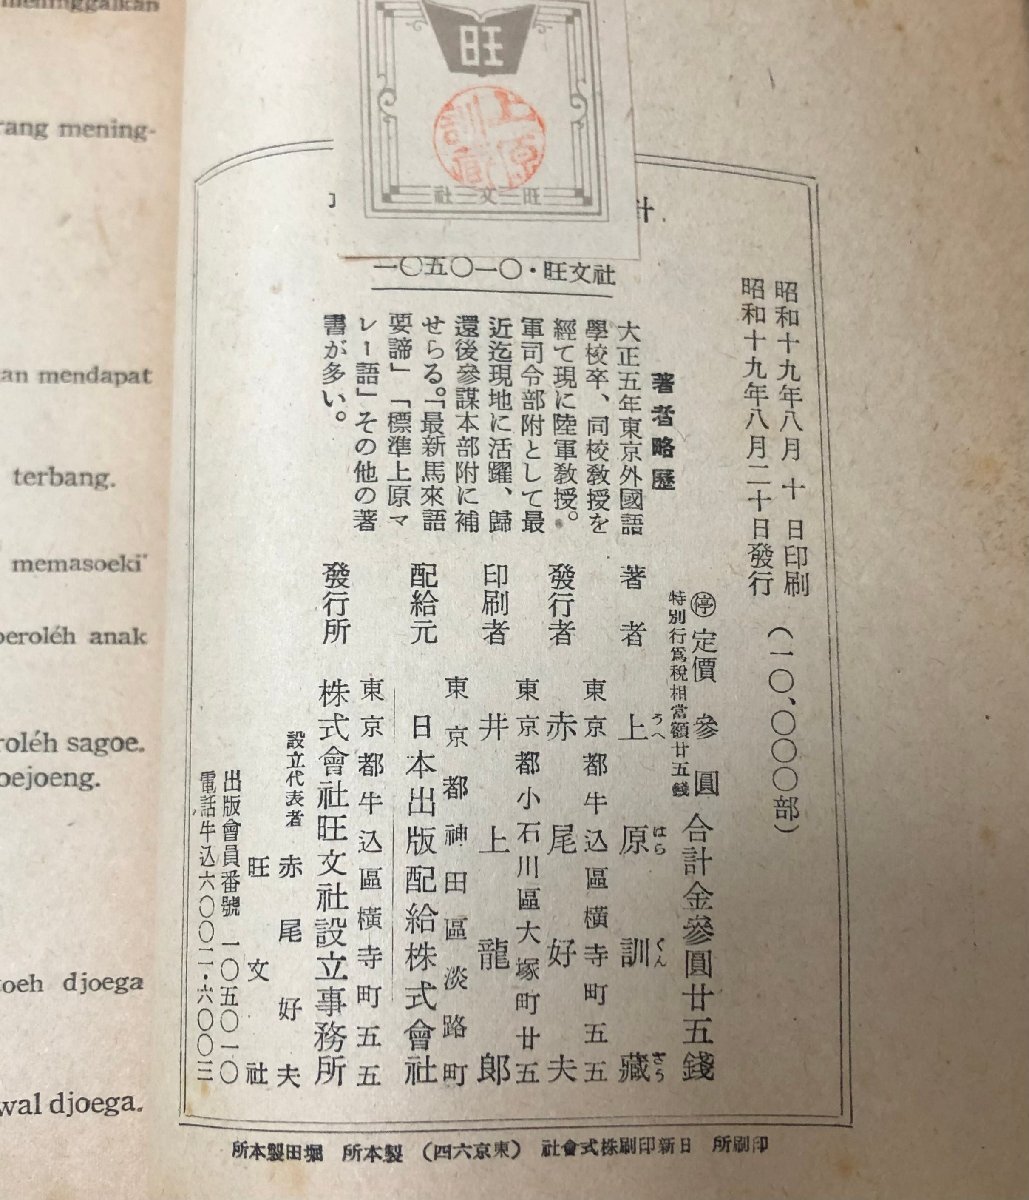 meninggalkan
rang mening-
an mendapat
terbang.
memasoeki
peroléh anak
roléh sagoe.
oejoeng.
toeh djoega
wal djoega.
旺
上原訓藏
旺文社
旺文社・〇一〇五〇一
昭和十九年八月十日印刷
昭和十九年八月二十日發行
(一〇、〇〇〇部)
著者略歷
大正五年東京外國語
學校卒、同校敎授を
經て現に陸軍敎授。
軍司令部附として最
近迄現地に活躍、歸
還後參謀本部附に補
せらる。「最新馬來語
要諦」「標準上原マ
レー語」その他の著
書が多い。
㊡定價 參圓 合計金參圓廿五錢
特別行爲稅相當額廿五錢
著者 上原訓藏
うへ はら くん ざう
東京都牛込區橫寺町五五
發行者 赤尾好夫
東京都小石川區大塚町廿五
印刷者 井上龍郎
東京都神田區淡路町
配給元 日本出版配給株式會社
東京都牛込區橫寺町五五
發行所 株式會社旺文社設立事務所
設立代表者 赤尾好夫
旺文社
出版會員番號 一〇五〇一〇
電話牛込六〇〇二・六〇〇三
印刷所 日新印刷株式會社 (東京六四) 製本所 堀田製本所